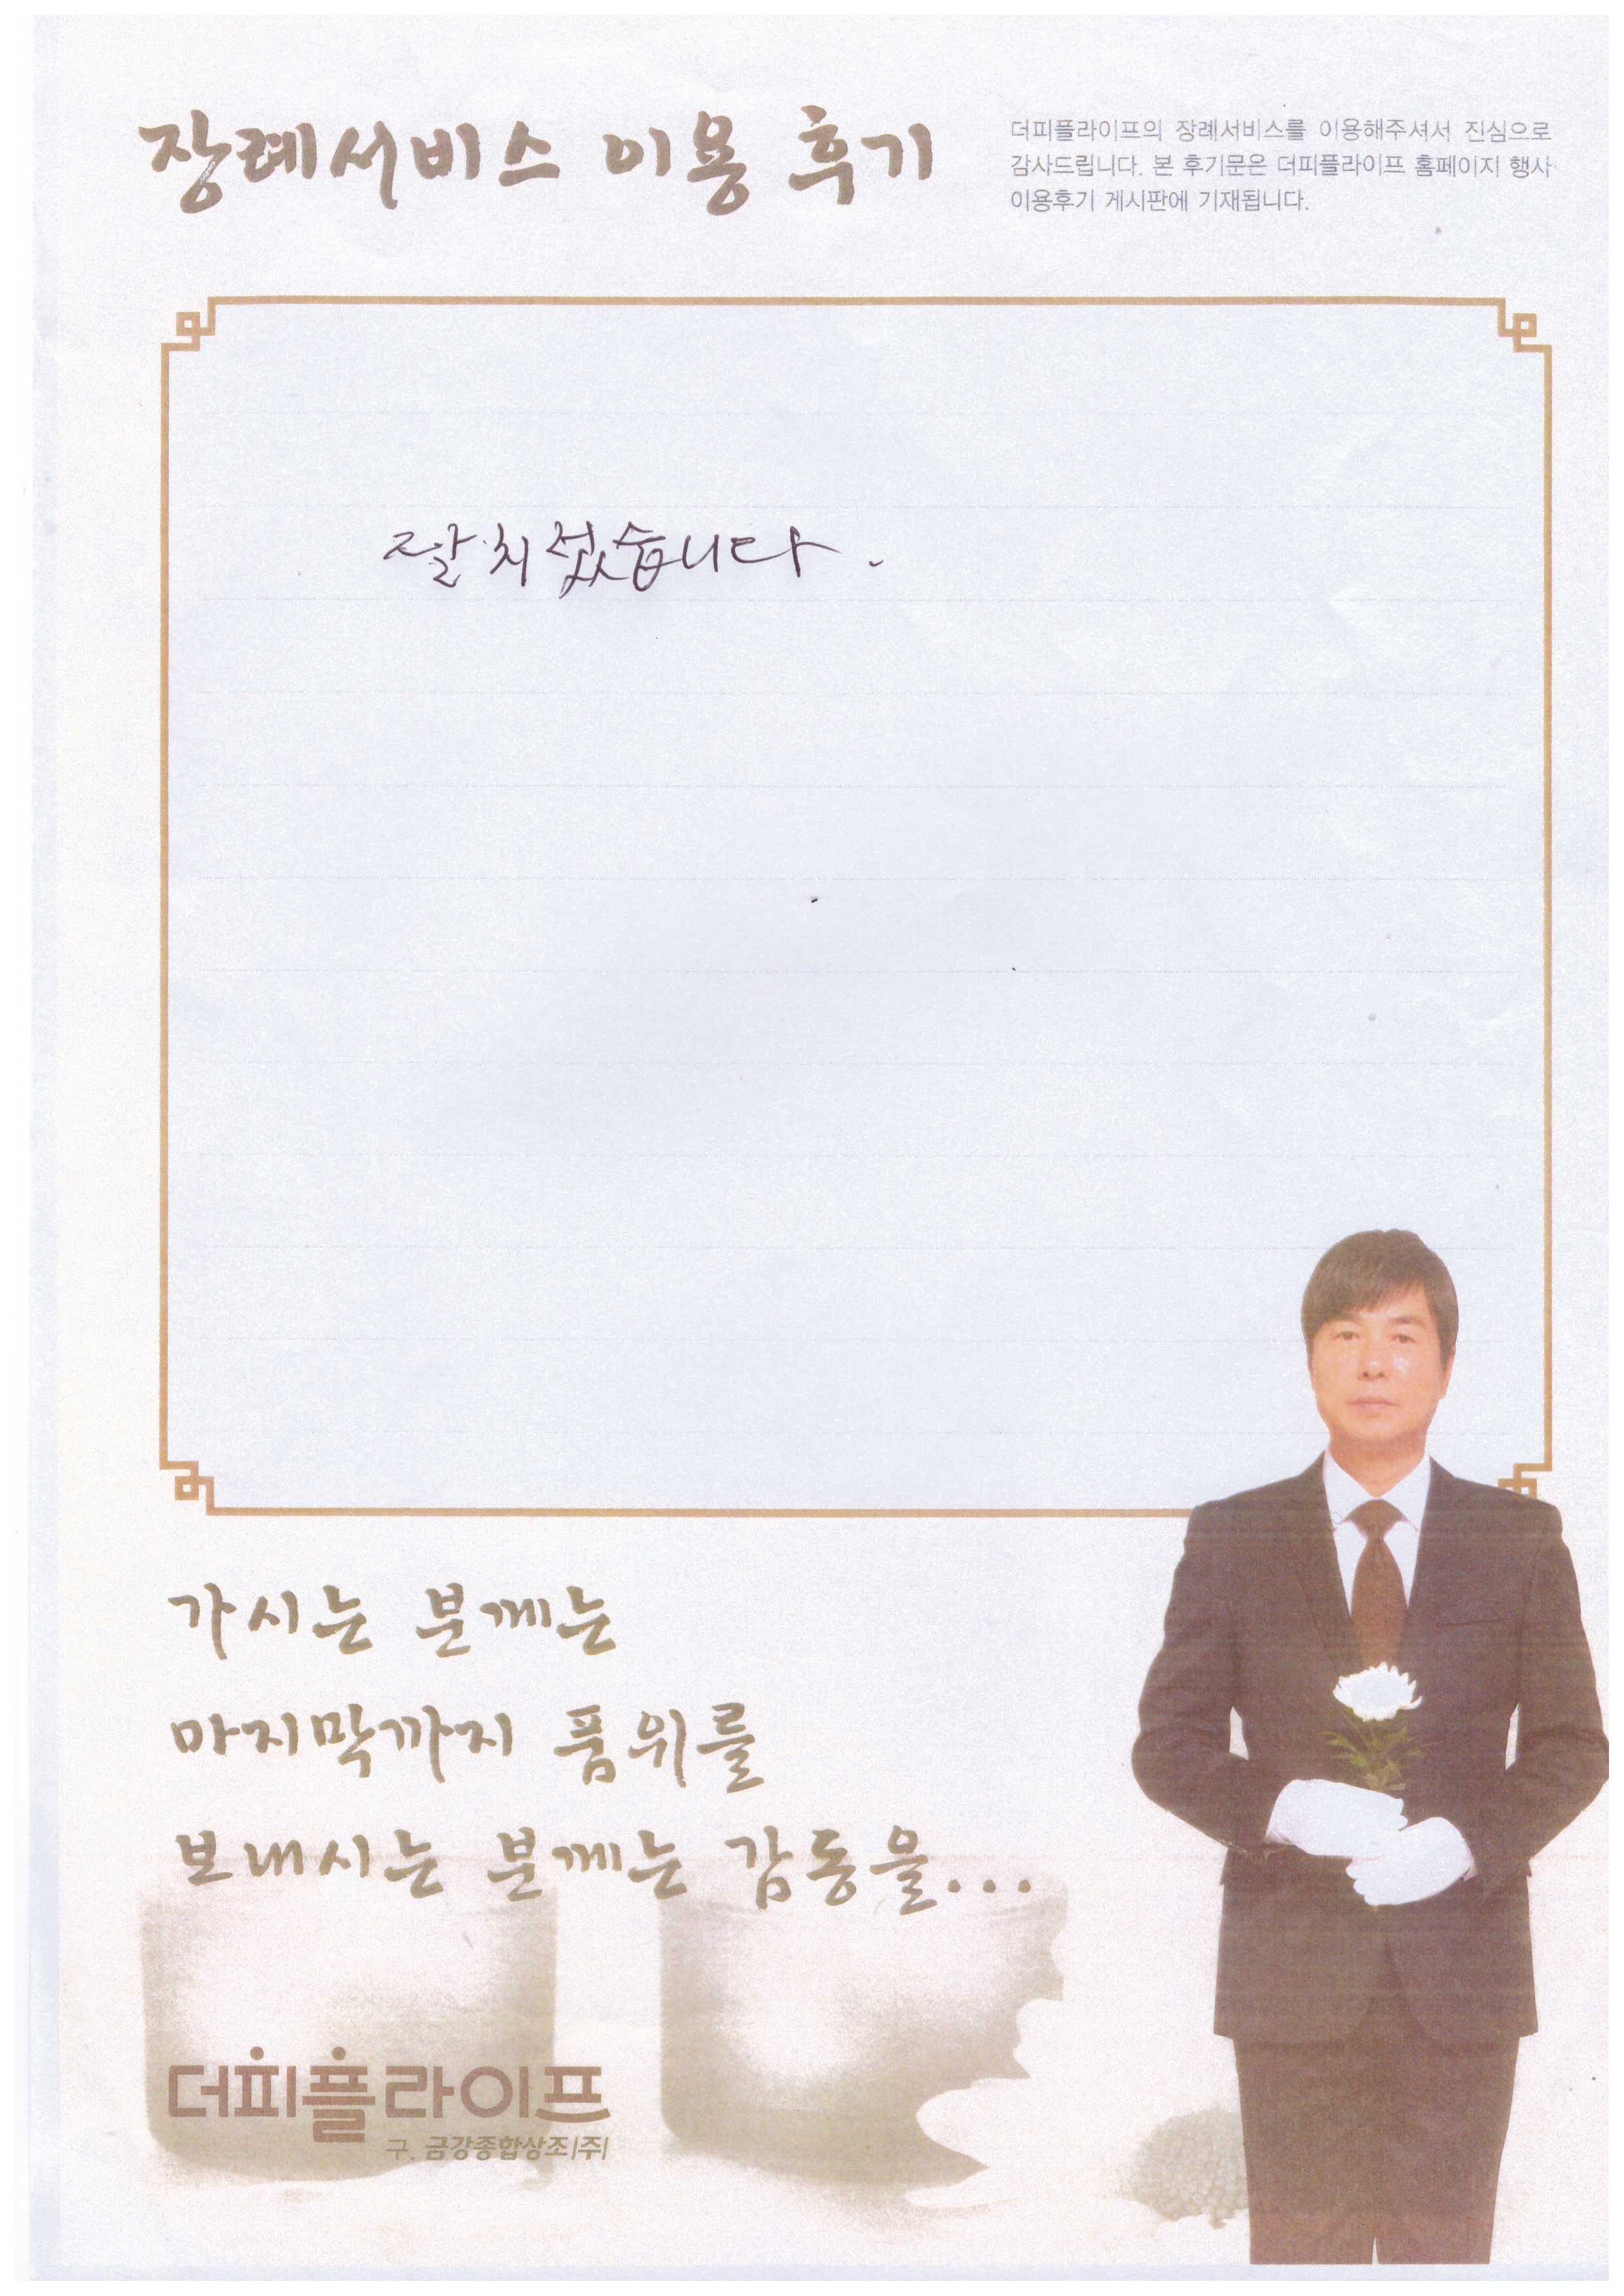 장례서비스 이용 후기
더피플라이프의 장례서비스를 이용해주셔서 진심으로
감사드립니다. 본 후기문은 더피플라이프 홈페이지 행사
이용후기 게시판에 기재됩니다.
잘 치렀습니다.
가시는 분께는
마지막까지 품위를
보내시는 분께는 감동을...
더피플라이프
구. 금강종합상조(주)